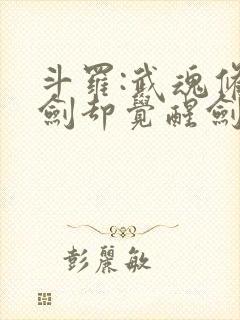 斗羅:武魂脩
劍却覺醒劍
彭麗敏